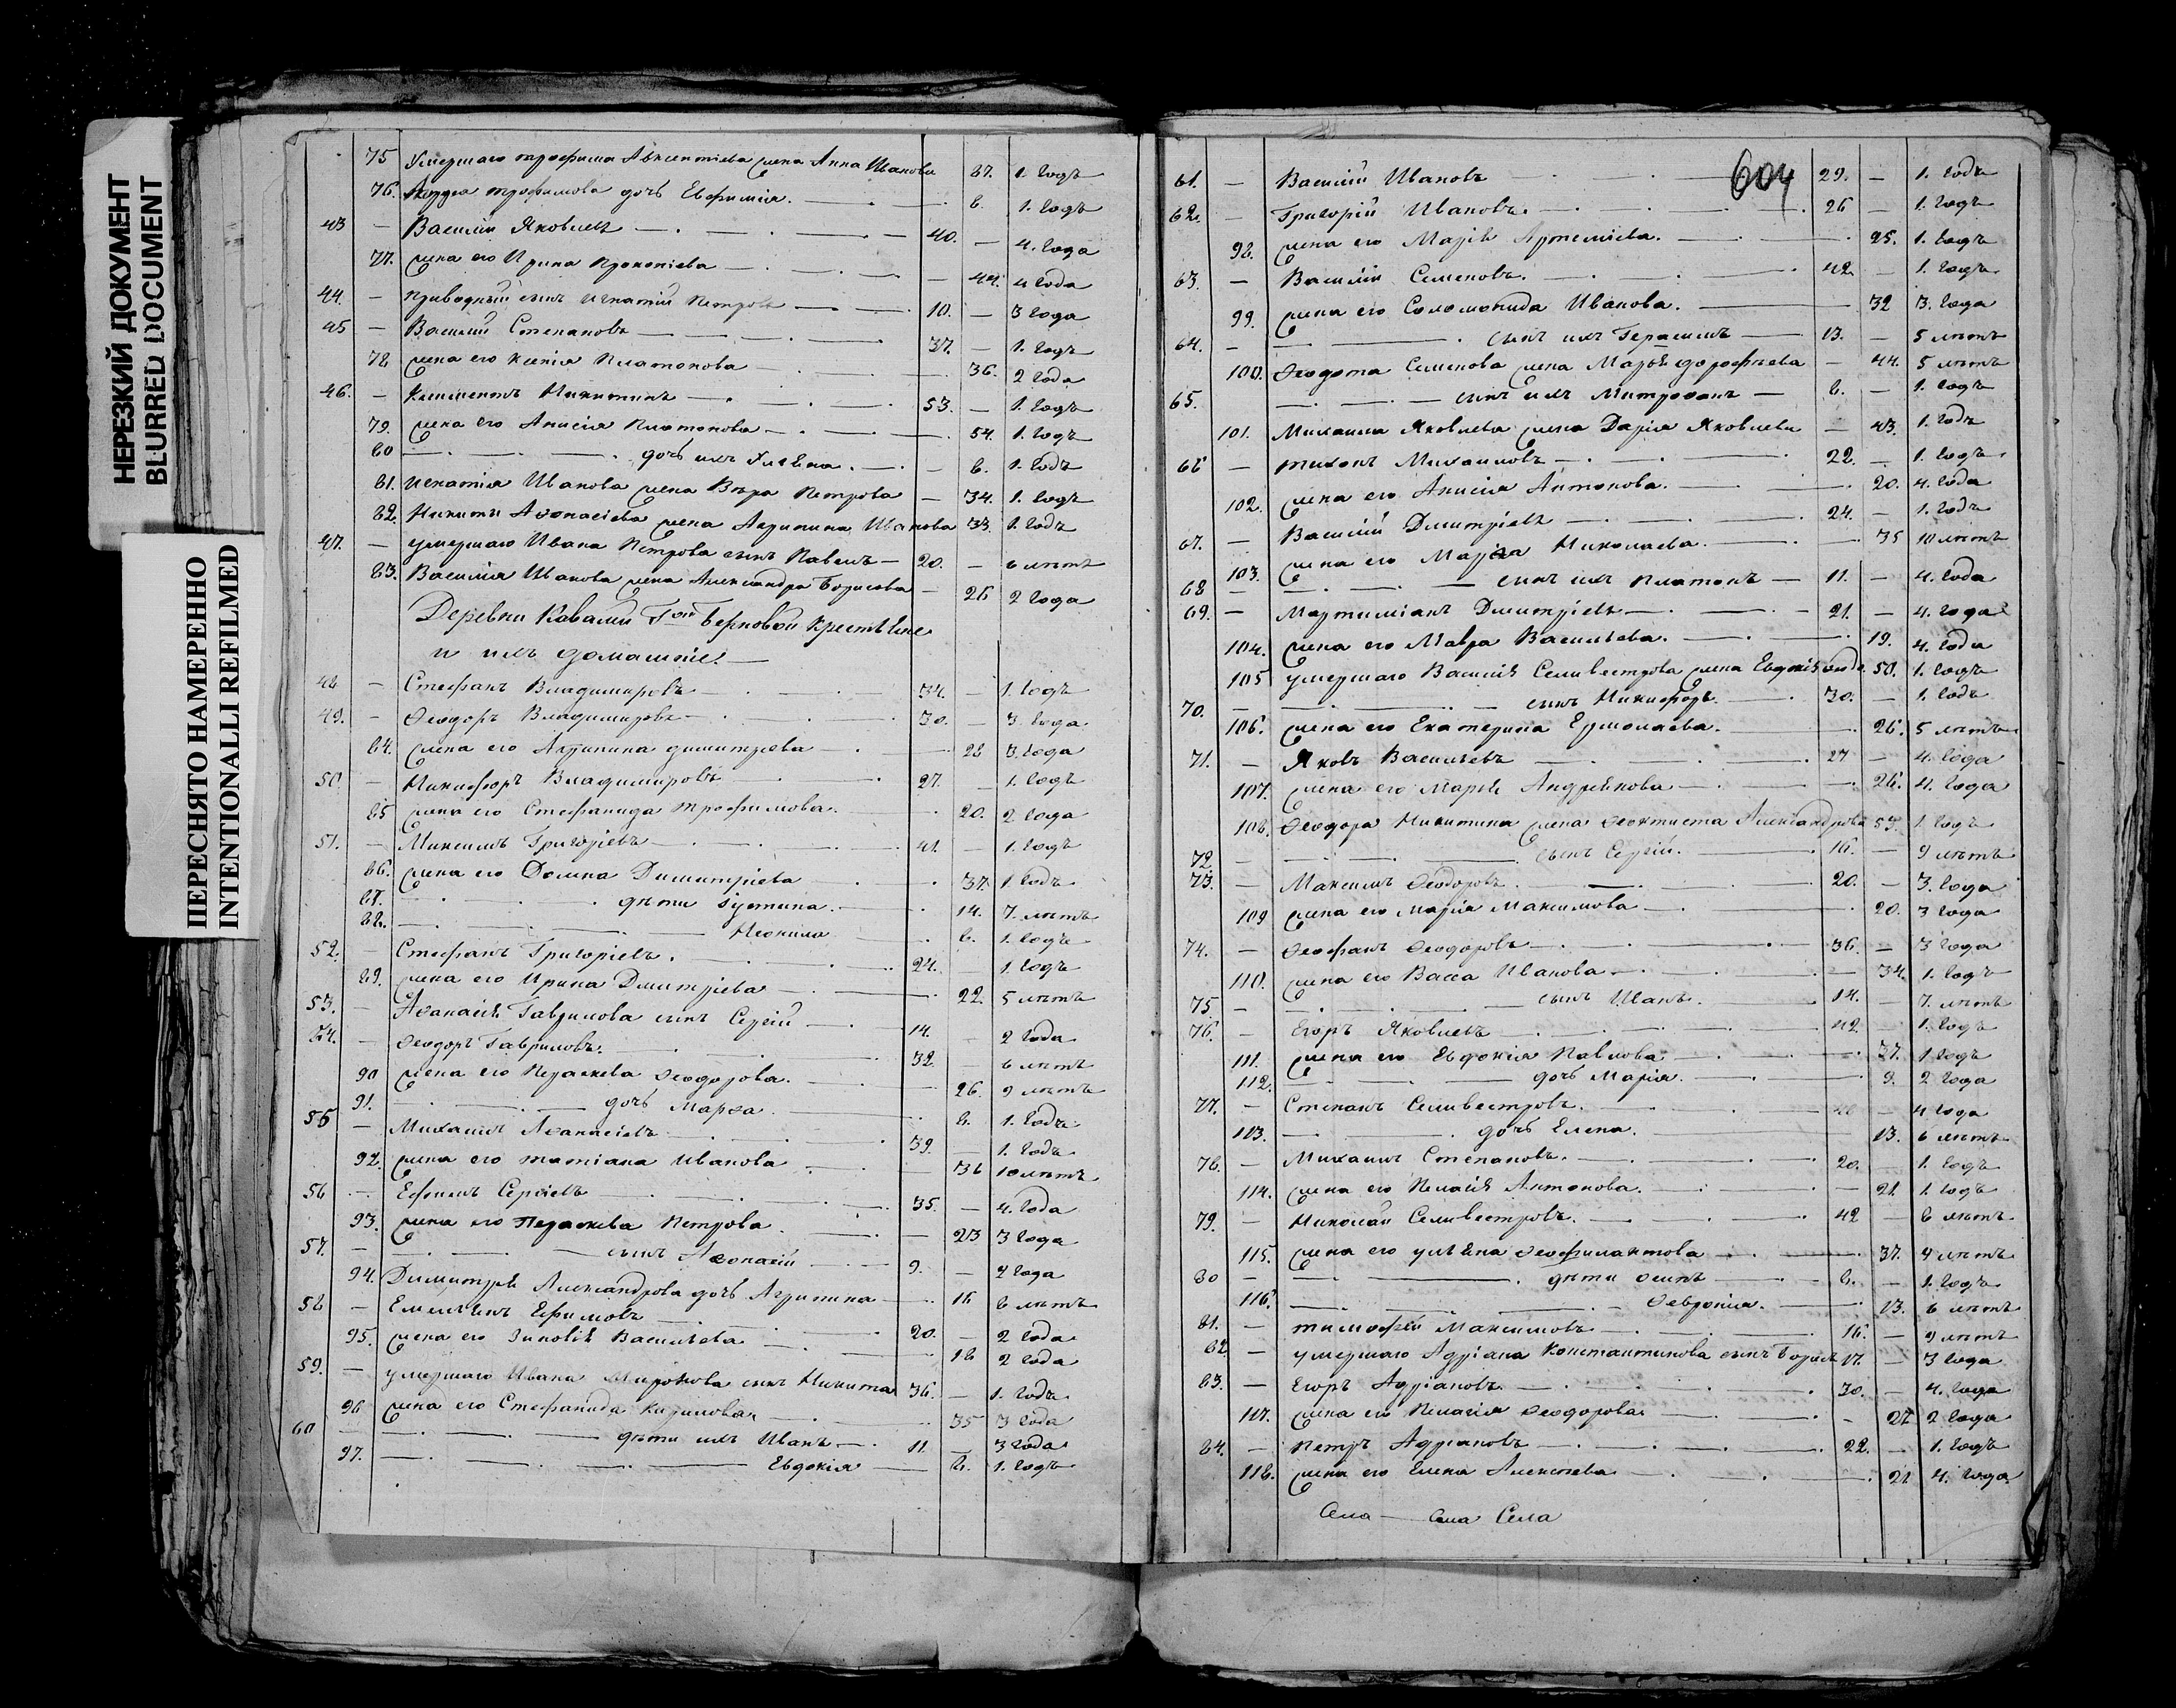 НЕРЕЗКИЙ ДОКУМЕНТ
BLURRED DOCUMENT
ПЕРЕСНЯТО НАМЕРЕННО
INTENTIONALLI REFILMED
75 Умершаго трофима Авксентіева жена Анна Иванова 67. 1. годъ
76. трофимова дочь Евфимія. 8. 1. годъ
43 — Василій Яковлевъ 40. — 4. года
77. жена его Ирина Прокопіева — 44. 4 года
44. — Приводный сынъ Игнатій Петровъ 10. — 3 года
45 — Василій Степановъ 37. — 1. годъ
78. жена его Ксенія Платонова 36. 2 года
46. — Климентъ Никитинъ 53. — 1. годъ
79. жена его Анисія Платонова 54. 1. годъ
80 дочь ихъ Ульяна. — 8. 1. годъ
81. Игнатія Иванова жена Вѣра Петрова — 34. 1. годъ
82. Никиты Аѳонасіева жена Агрипина Иванова 33. 1. годъ
47. — умершаго Ивана Петрова сынъ Павелъ 20. — 6 лѣтъ
83. Василія Иванова жена Александра Борисова — 26 2 года
Деревни Ковалей Гжи Берновой крестьяне
и ихъ домашніе.
48 — Стефанъ Владимировъ 34. — 1. годъ
49. — Ѳеодоръ Владимировъ 30. — 3. года
84. жена его Агрипина димитріева 28 3. года
50. — Никифоръ Владимировъ 27. — 1. годъ
85 жена его Стефанида трофимова. 20. 2 года
51. — Максимъ Григоріевъ 41. — 1. годъ
86. жена его Домна Димитріева 37. 1. годъ
87. дѣти Іустина. 14. 7. лѣтъ
88. Неонила 8. 1. годъ
52. — Стефанъ Григоріевъ. 24. — 1. годъ
89. жена его Ирина Дмитріева 22. 5 лѣтъ
53. — Аѳанасія Гаврилова сынъ Сергій 14. — 2 года
54. — Ѳеодоръ Гавриловъ. 32. — 6 лѣтъ
90 жена его Параскева Ѳеодорова. — 26. 9 лѣтъ
91. дочь Марѳа. 8. 1. годъ
55 — Михаилъ Аѳанасіевъ 39. — 1. годъ
92. жена его татіана Иванова — 36 10 лѣтъ
56 — Ефимъ Сергіевъ 35. — 4. года
93. жена его Параскева Петрова. — 23 3 года
57. — сынъ Аѳонасій 9. — 2 года
94. Димитрія Александрова дочь Агрипина 16 6 лѣтъ
58 — Емельянъ Ефимовъ 20. — 2 года
95. жена его Зиновія Васильева 18 2 года
59. — умершаго Ивана Миронова сынъ Никита 36. — 1. годъ
96 жена его Стефанида Кирилова 35 3 года
60 — дѣти ихъ Иванъ 11. — 3 года
97. Евдокія 8. 1. годъ
604
61. — Василій Ивановъ 29. — 1. годъ
62. — Григорій Ивановъ. 26 — 1. годъ
98. жена его Марія Артеміева. 25. 1. годъ
63. — Василій Семеновъ. 42. — 1. годъ
99. жена его Соломонида Иванова. 32 3. года
64. — сынъ ихъ Герасимъ 13. — 5 лѣтъ
100. Ѳеодота Семенова жена Марья дорофѣева — 44. 5 лѣтъ
65. сынъ ихъ Митрофанъ 8. — 1. годъ
101. Михаила Яковлева жена Дарія Яковлева — 43. 1. годъ
66 — тихонъ Михаиловъ 22. — 1. годъ
102. жена его Анисія Антонова. 20. 4. года
67. — Василій Димитріевъ 24. — 1. годъ
103. жена его Марѳа Николаева. 35 10 лѣтъ
68 — сынъ ихъ Платонъ 11. — 4. года
69. — Мартиміанъ Димитріевъ 21. — 4. года
104. жена его Мавра Васильева. 19. 4. года
105 умершаго Василія Селивестрова жена Евдокія 50. 1. годъ
70. — сынъ Никифоръ. 30. — 1. годъ
106. жена его Екатерина Ермолаева. 26. 5 лѣтъ
71. — Яковъ Васильевъ 27 — 4. года
107. жена его Марья Андріянова 26. 4. года
108. Ѳеодора Никитина жена Ѳеоктиста Александрова 53. 1. годъ
72. — сынъ Сергій. 16. — 9 лѣтъ
73. — Максимъ Ѳеодоровъ. 20. — 3. года
109 жена его Марія Максимова 20. 3 года
74. — Ѳеофанъ Ѳеодоровъ 36. — 3 года
110. жена его Васса Иванова 34. 1. годъ
75. — сынъ Иванъ. 14. — 7. лѣтъ
76. — Егоръ Яковлевъ 42 — 1. годъ
111. жена его Евдокія Павлова 37. 1 годъ
112. дочь Марія. 9. 2 года
77. — Степанъ Селивестровъ. — 4 года
113. дочь Елена. 13. 6 лѣтъ
78. — Михаилъ Степановъ. 20. — 1. годъ
114. жена его Пелагія Антонова. — 21 1. годъ
79. — Николай Селивестровъ. 42 — 6 лѣтъ
115. жена его ульяна Ѳеофилактова 37. 4 лѣтъ
80 — дѣти Осипъ 8. — 1. годъ
116. Ѳевронія. 13. 6 лѣтъ
81. — тимофей Максимовъ 16. — 9 лѣтъ
82. — умершаго Адріана Константинова сынъ Борисъ 17. — 3 года
83. — Егоръ Адріановъ 30. — 4. года
117. жена его Пелагія Ѳеодорова — 27 2 года
84. — Петръ Адріановъ 22. — 1. годъ
118. жена его Елена Алексѣева 21 4. года
Села Села Села